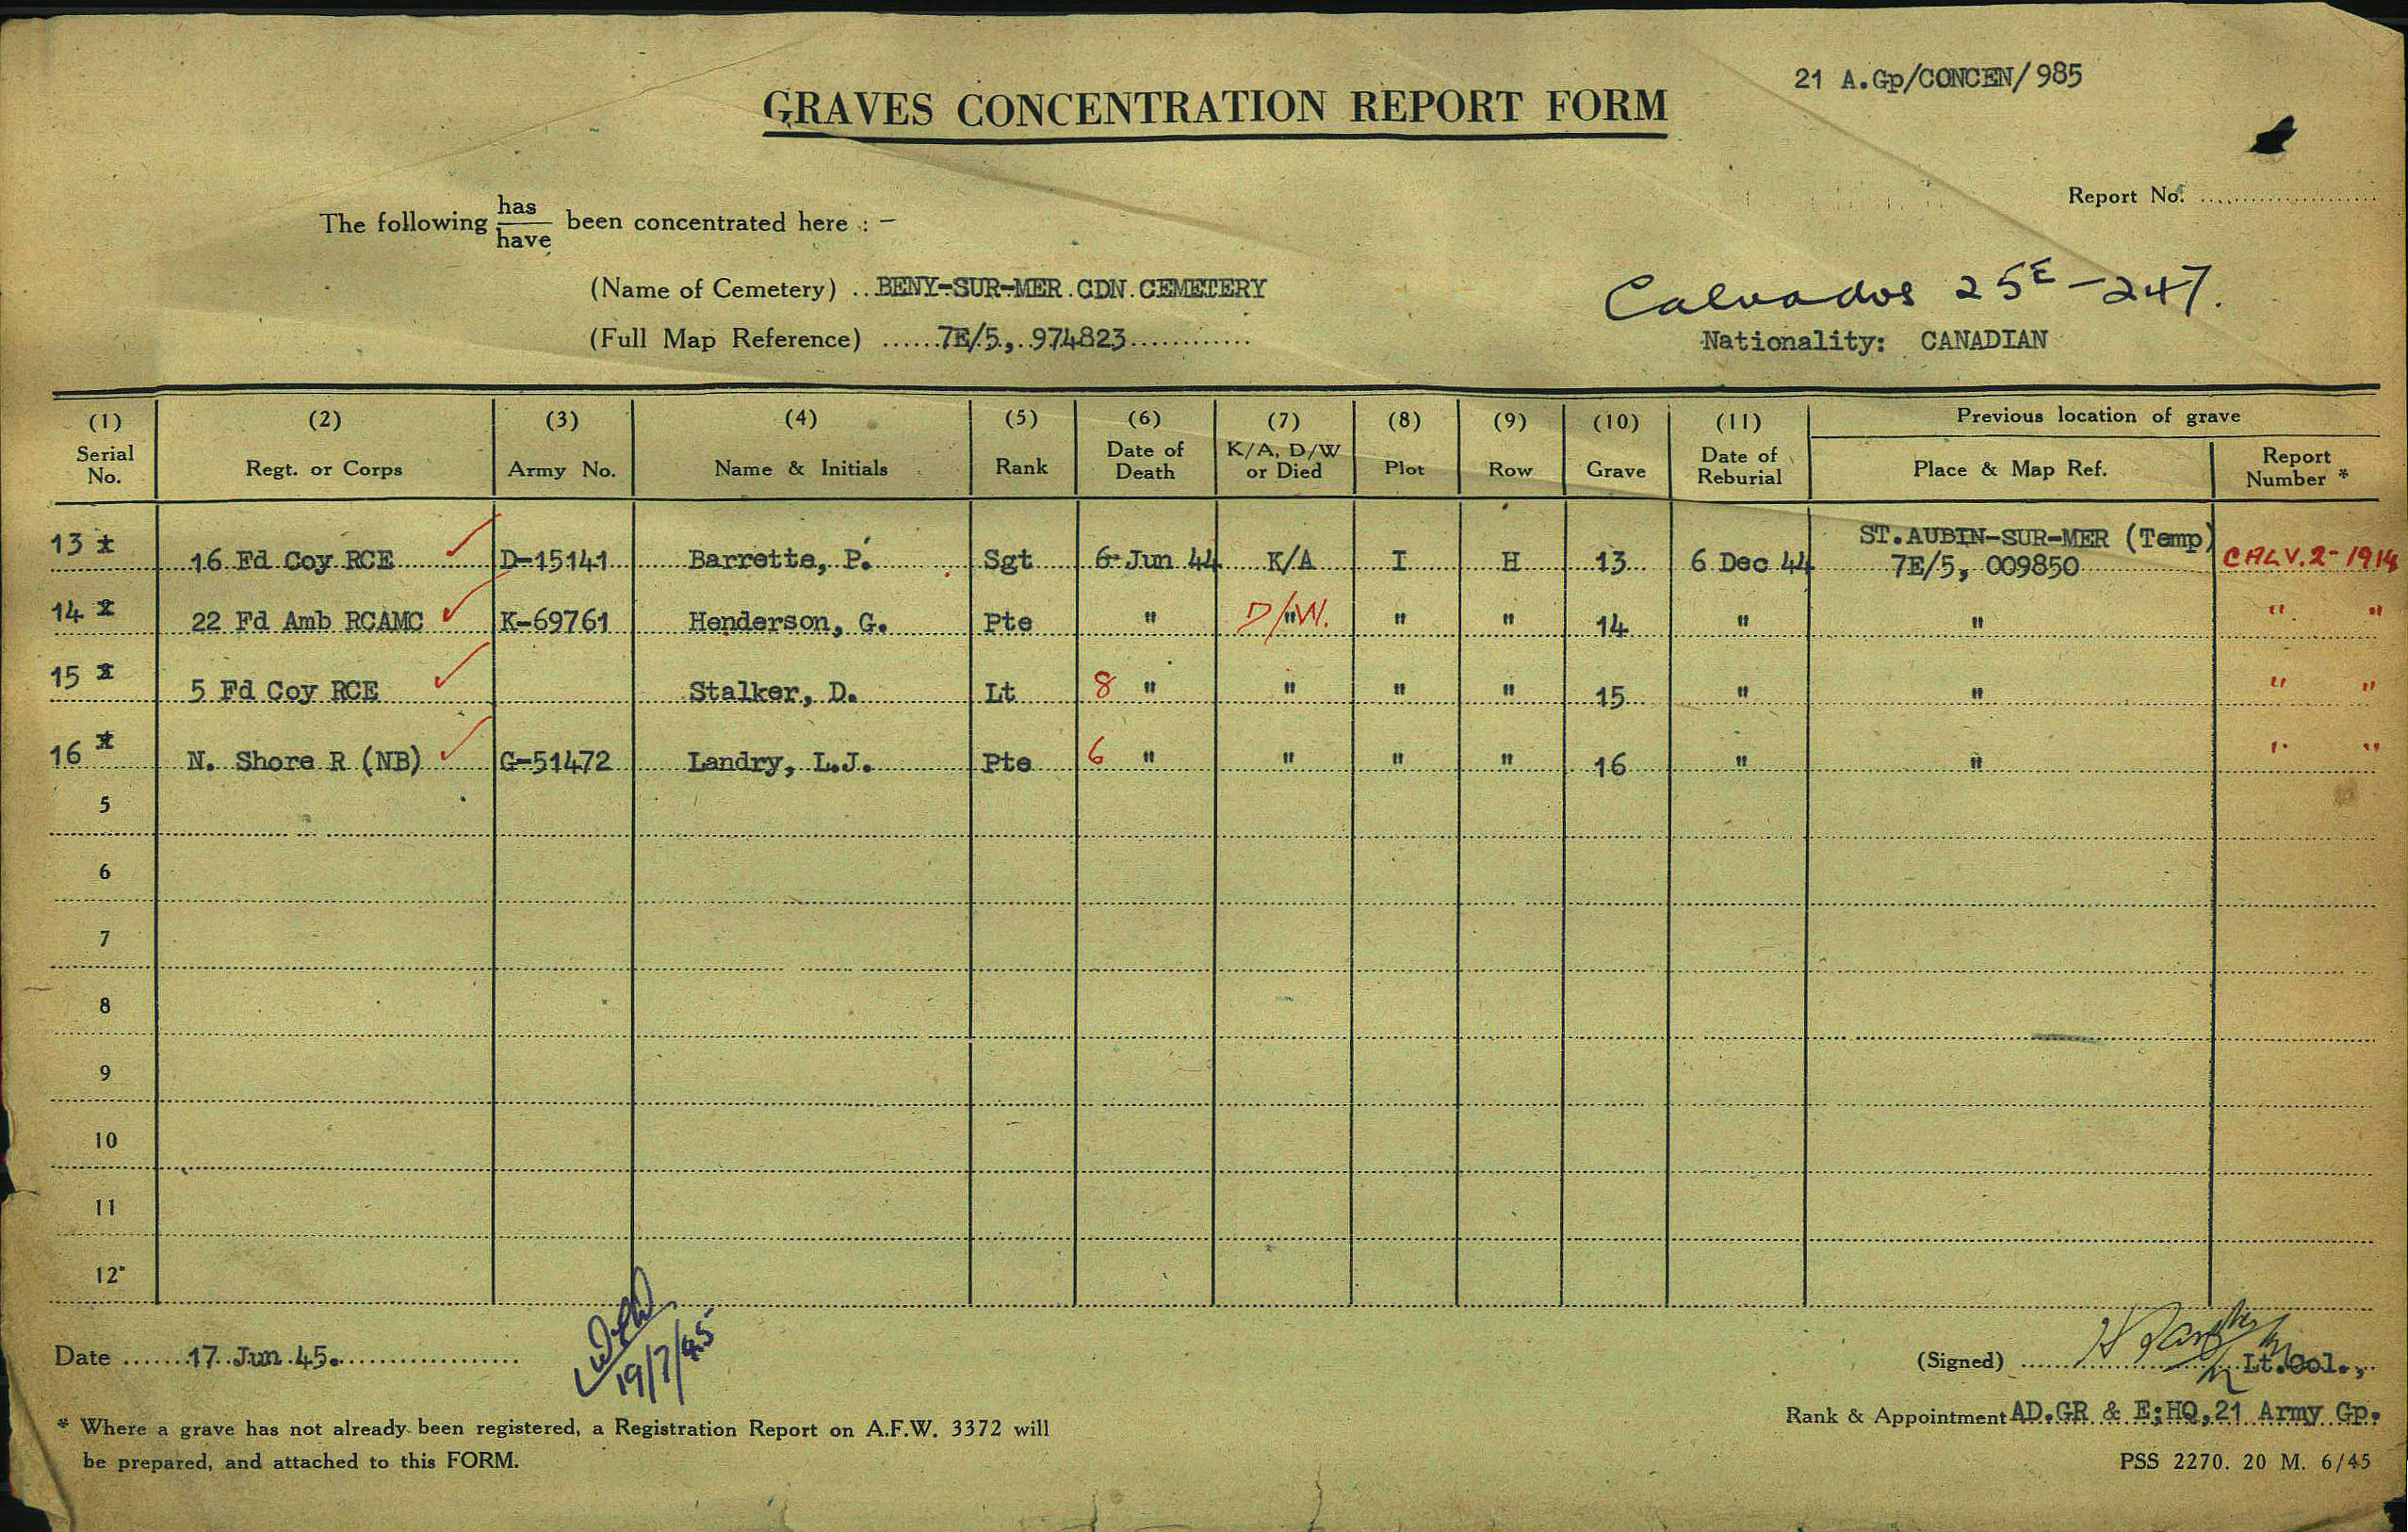 21 A.Gp/CONCEN/985
GRAVES CONCENTRATION REPORT FORM
Report No.
The following has/have been concentrated here : —
(Name of Cemetery) BENY-SUR-MER CDN. CEMETERY
Calvados 25E - 247.
(Full Map Reference) 7E/5, 974823
Nationality: CANADIAN
(1) Serial No. (2) Regt. or Corps (3) Army No. (4) Name & Initials (5) Rank (6) Date of Death (7) K/A, D/W or Died (8) Plot (9) Row (10) Grave (11) Date of Reburial Previous location of grave Place & Map Ref. Report Number *
13 16 Fd Coy RCE D-15141 Barrette, P. Sgt 6 Jun 44 K/A I H 13 6 Dec 44 ST.AUBIN-SUR-MER (Temp) 7E/5, 009850 CALV.2-1914
14 22 Fd Amb RCAMC K-69761 Henderson, G. Pte " D/W. " " 14 " " " "
15 5 Fd Coy RCE Stalker, D. Lt 8 " " " " 15 " " " "
16 N. Shore R (NB) G-51472 Landry, L.J. Pte 6 " " " " 16 " " " "
5
6
7
8
9
10
11
12
Date 17 Jun 45.
19/7/45
(Signed) Lt.Col.,
Rank & Appointment AD.GR & E;HQ,21 Army Gp.
* Where a grave has not already been registered, a Registration Report on A.F.W. 3372 will
be prepared, and attached to this FORM.
PSS 2270. 20 M. 6/45